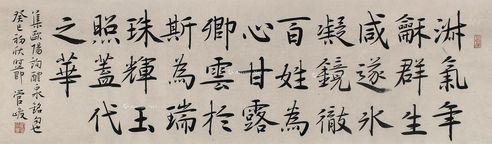 淑氣年
龢群生
咸遂冰
凝鏡徹
百姓為
心甘露
卿雲於
斯為瑞
珠輝玉
照蓋代
之華
集歐陽詢醴泉銘句也
癸巳初秋 管峻